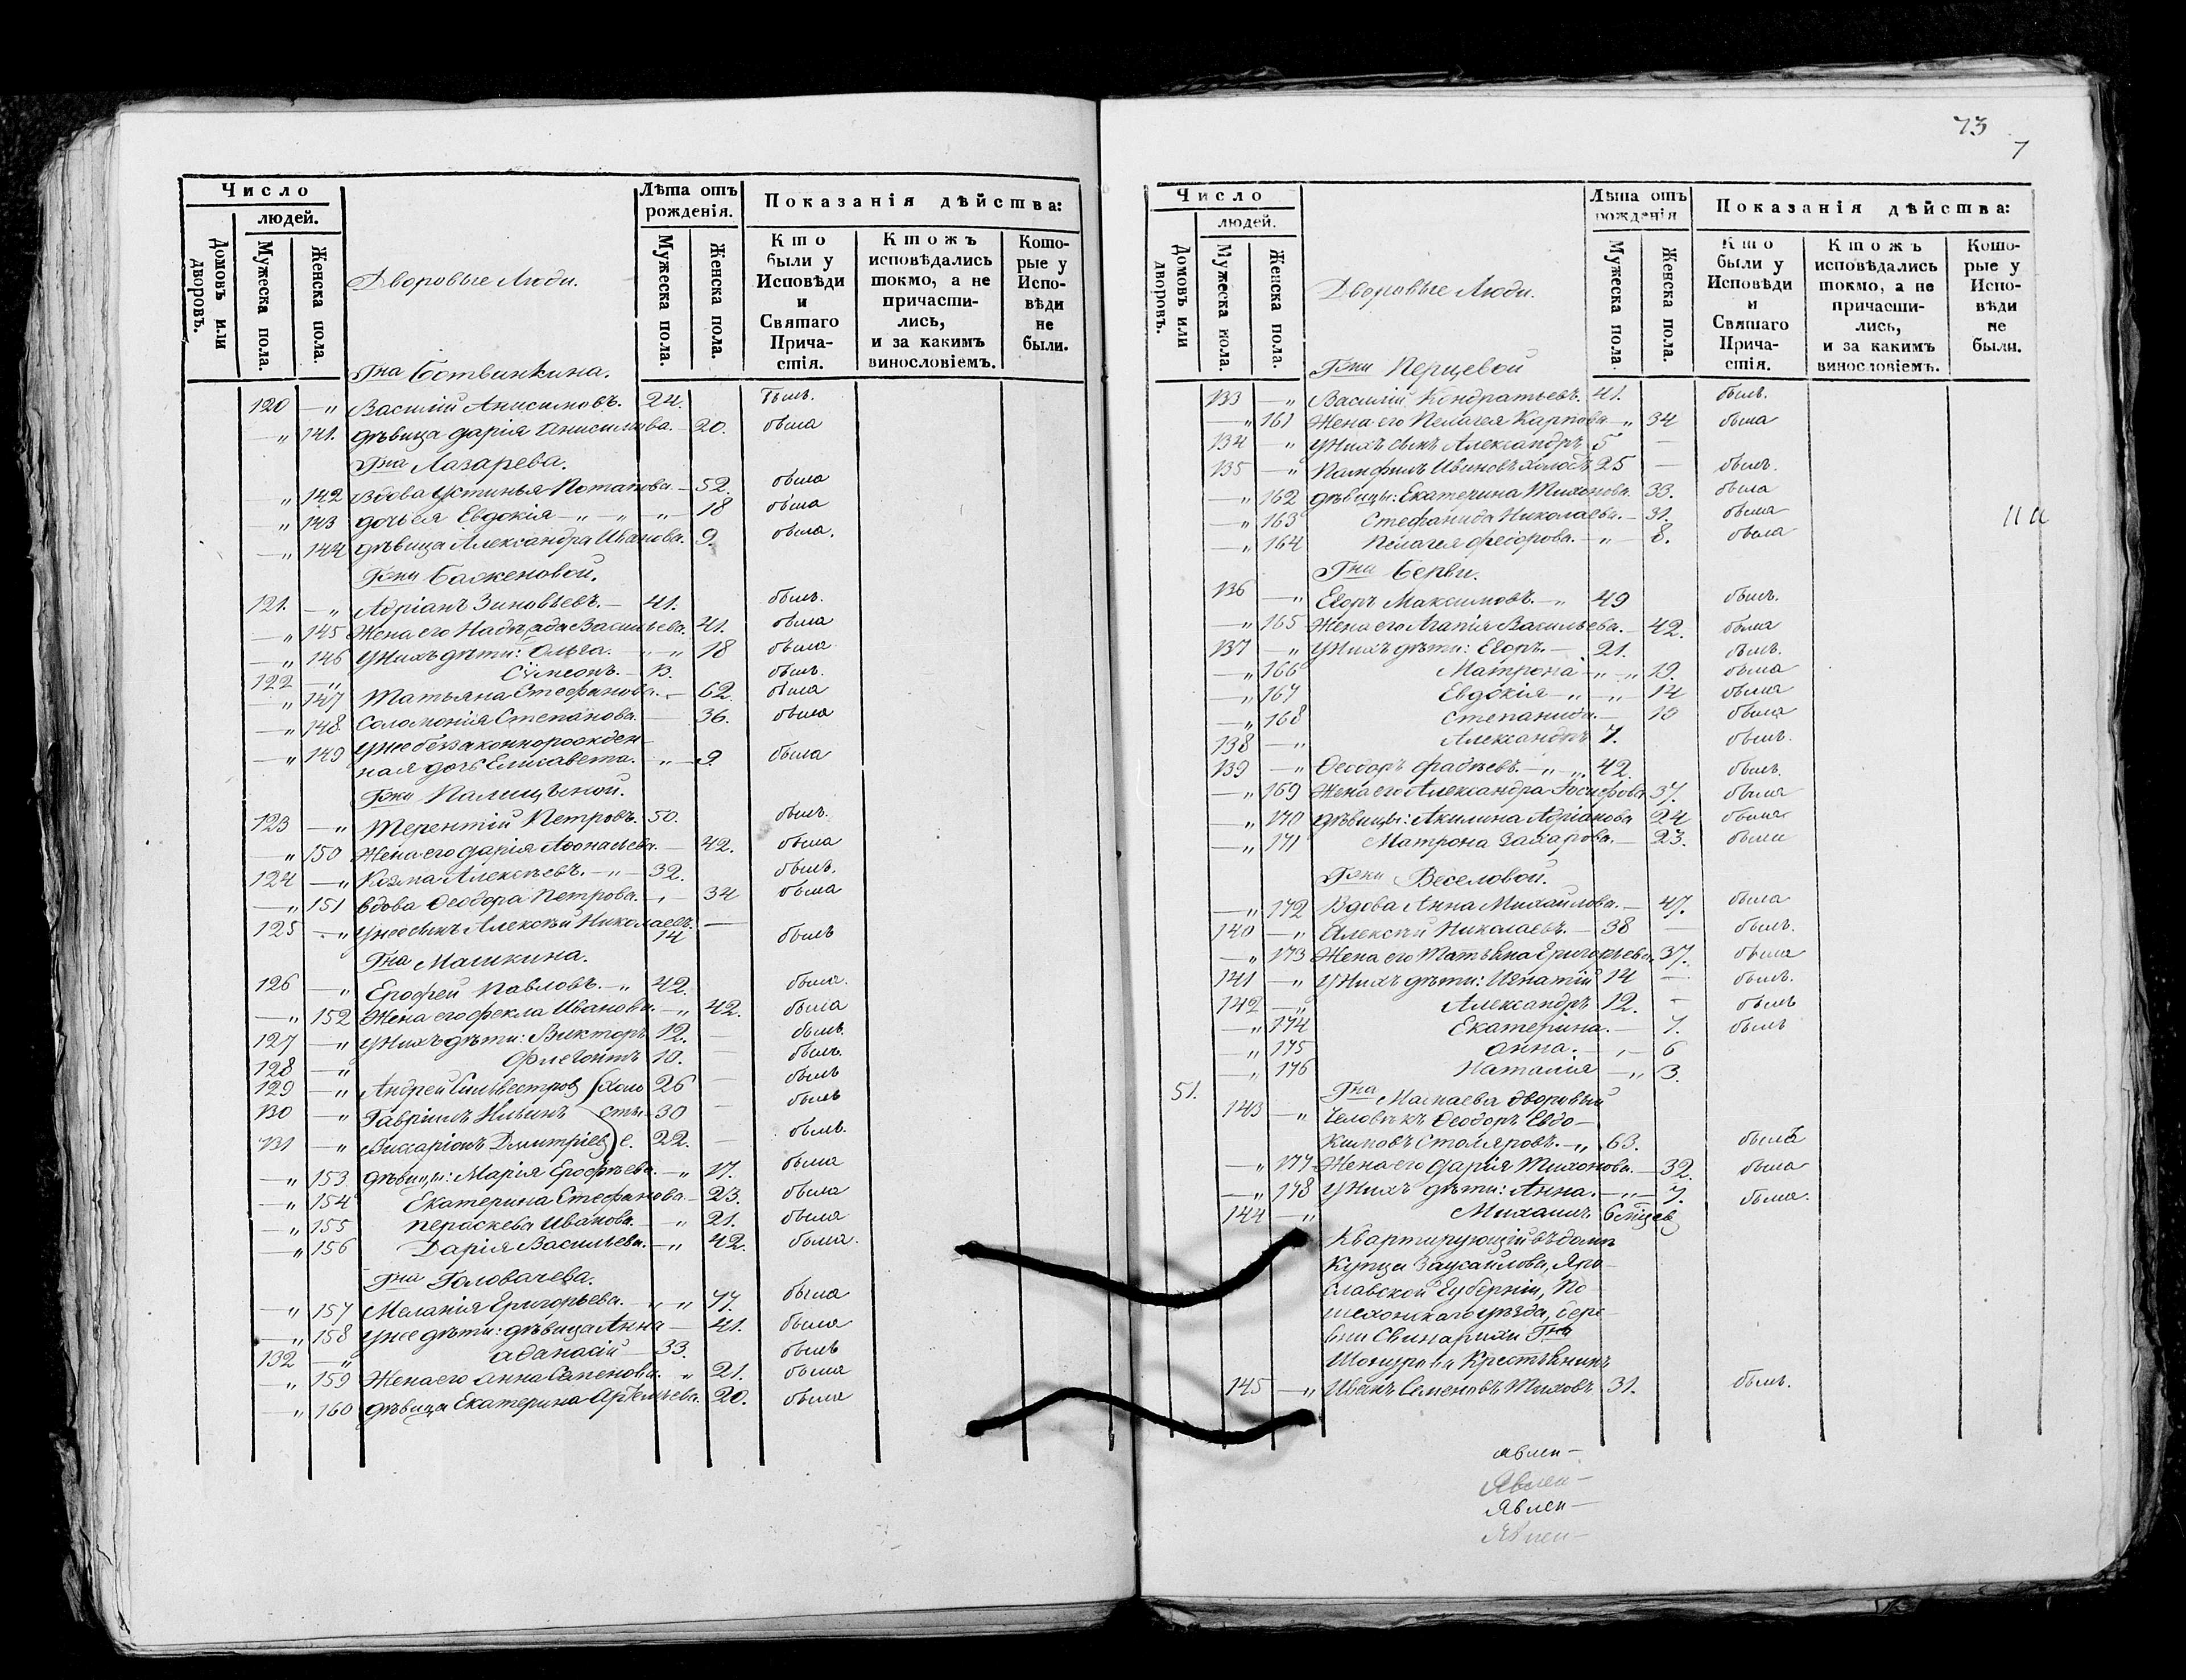 Число
людей.
Домовъ или дворовъ.
Мужеска пола.
Женска пола.
Дворовые Люди.
Лѣта отъ рожденія.
Мужеска пола.
Женска пола.
Показанія дѣйства:
Кто были у Исповѣди и Святаго Причастія.
Ктожъ исповѣдались токмо, а не причастились, и за какимъ винословіемъ.
Которые у Исповѣди не были.
Гна Ботвинкина.
120 — " Василій Анисимовъ. 24. былъ.
— " 141. дѣвица Дарія Анисимова. — 20. была
Гна Лазарева.
" 142 Вдова Устинья Потапова — 52. была
" 143 дочь ея Евдокія — " — " — " — 18 была
— " 144 дѣвица Александра Иванова. 9. была.
Гжи Баженовой.
121. — " Адріанъ Зиновьевъ. — 41. былъ.
— " 145 Жена его Надежда Васильева. 41. была
— " 146 У нихъ дѣти: Ольга. — " — " 18 была
122 — " Сѵмеонъ. — 13. былъ.
— " 147 Татьяна Стефанова. — 62. была
— " 148 Соломонія Степанова. — 36. была
— " 149 У нее беззаконнорожден-
ная дочь Елисавета. — " — 9 была
Гжи Палицыной.
123 — " Терентій Петровъ. 50. былъ.
— " 150 Жена его Дарія Афонасьева — 42. была
124 — " Козма Алексѣевъ. — " — 32. былъ.
— " 151 вдова Ѳеодора Петрова. — " — 34 была
125 — " У нее сынъ Алексѣй Николаевъ. —
14 былъ
Гна Машкина.
126 — " Ерофей Павловъ. — " 42. была.
— " 152 Жена его Фекла Иванова. — " 42. была
127 — " У нихъ дѣти: Викторъ 12. — былъ.
128 — " Флегонтъ 10. — былъ.
129 — " Андрей Сильвестров (холо 26 — былъ
130 — " Гавріилъ Ильинъ сты 30 — былъ
131 — " Виссаріонъ Дмитріев) е. 22. — былъ.
— " 153 дѣвицы: Марія Ерофѣева. — " 17. была
— " 154 Екатерина Стефанова — 23. была
— " 155 Параскева Иванова. — " 21. была
— " 156 Дарія Васильева. — " 42. была.
Гна Головачева.
— " 157 Меланія Григорьева. — " " 77. была
— " 158 У нее дѣти: дѣвица Анна — 41. была
132 — " Аѳанасій — 33. былъ
— " 159 Жена его Анна Семенова. " 21. была
— " 160 дѣвица Екатерина Артемьева. 20. была
73
7
Число
людей.
Домовъ или дворовъ.
Мужеска пола.
Женска пола.
Дворовые Люди.
Лѣта отъ рожденія
Мужеска пола.
Женска пола.
Показанія дѣйства:
Кто были у Исповѣди и Святаго Причастія.
Ктожъ исповѣдались токмо, а не причастились, и за какимъ винословіемъ.
Которые у Исповѣди не были.
Гжи Перцевой
133 — " Василій Кондратьевъ. 41. былъ.
— " 161 Жена его Пелагея Карпова — " 34 была
134 — " У нихъ сынъ Александръ 5 —
135 — " Памфилъ Ивановъ холостъ 25 — былъ.
— " 162 дѣвицы: Екатерина Тихонова. 33. была
— " 163 Стефанида Николаева. — 31. была
— " 164 Пелагея Федорова. — " — 8. была
Гжи Берви.
136 — " Егоръ Максимовъ. — " 49 былъ.
— " 165 Жена его Агапія Васильева. — 42. была
137 — " У нихъ дѣти: Егоръ. — 21. былъ.
— " 166 Матрона — " — " 19. была
— " 167 Евдокія — " — " — 14 была
— " 168 Степанида. — 10 была
138 — " Александръ 7. былъ.
139 — " Ѳеодоръ Фадѣевъ. — " — " 42. былъ.
— " 169 Жена его Александра Іосифова 37. была
— " 170 дѣвицы: Акилина Адріанова 24 была
— " 171 Матрона Захарова. — 23. была
Гжи Веселовой.
— " 172 Вдова Анна Михайлова. — 47. была
140 — " Алексѣй Николаевъ. — 38 — былъ.
— " 173 Жена его Татьяна Григорьева. 37. была
141 — " У нихъ дѣти: Игнатій 14 — былъ.
142 — " Александръ 12. — былъ
— " 174 Екатерина. — 7. былъ
— " 175 Анна. — " — 6
— " 176 Наталія — " 3.
51. Гна Маслаева дворовый
143 — " Человѣкъ Ѳеодоръ Евдо-
кимовъ Столяровъ. — " 63. былъ
— " 177 Жена его Дарія Тихонова. — 32. была
— " 178 У нихъ дѣти: Анна. — " — 7. была.
144 — " Михаилъ 6 мѣцев
Квартирующій въ домѣ
Купца Заусайлова, Яро-
славской Губерніи, По-
шехонскаго уѣзда, дере-
вни Свинарихи Гна
Крестьянинъ
145 — " Иванъ Семеновъ Тиховъ 31. былъ.
явлен —
Явлен —
Явлен —
Явлен —